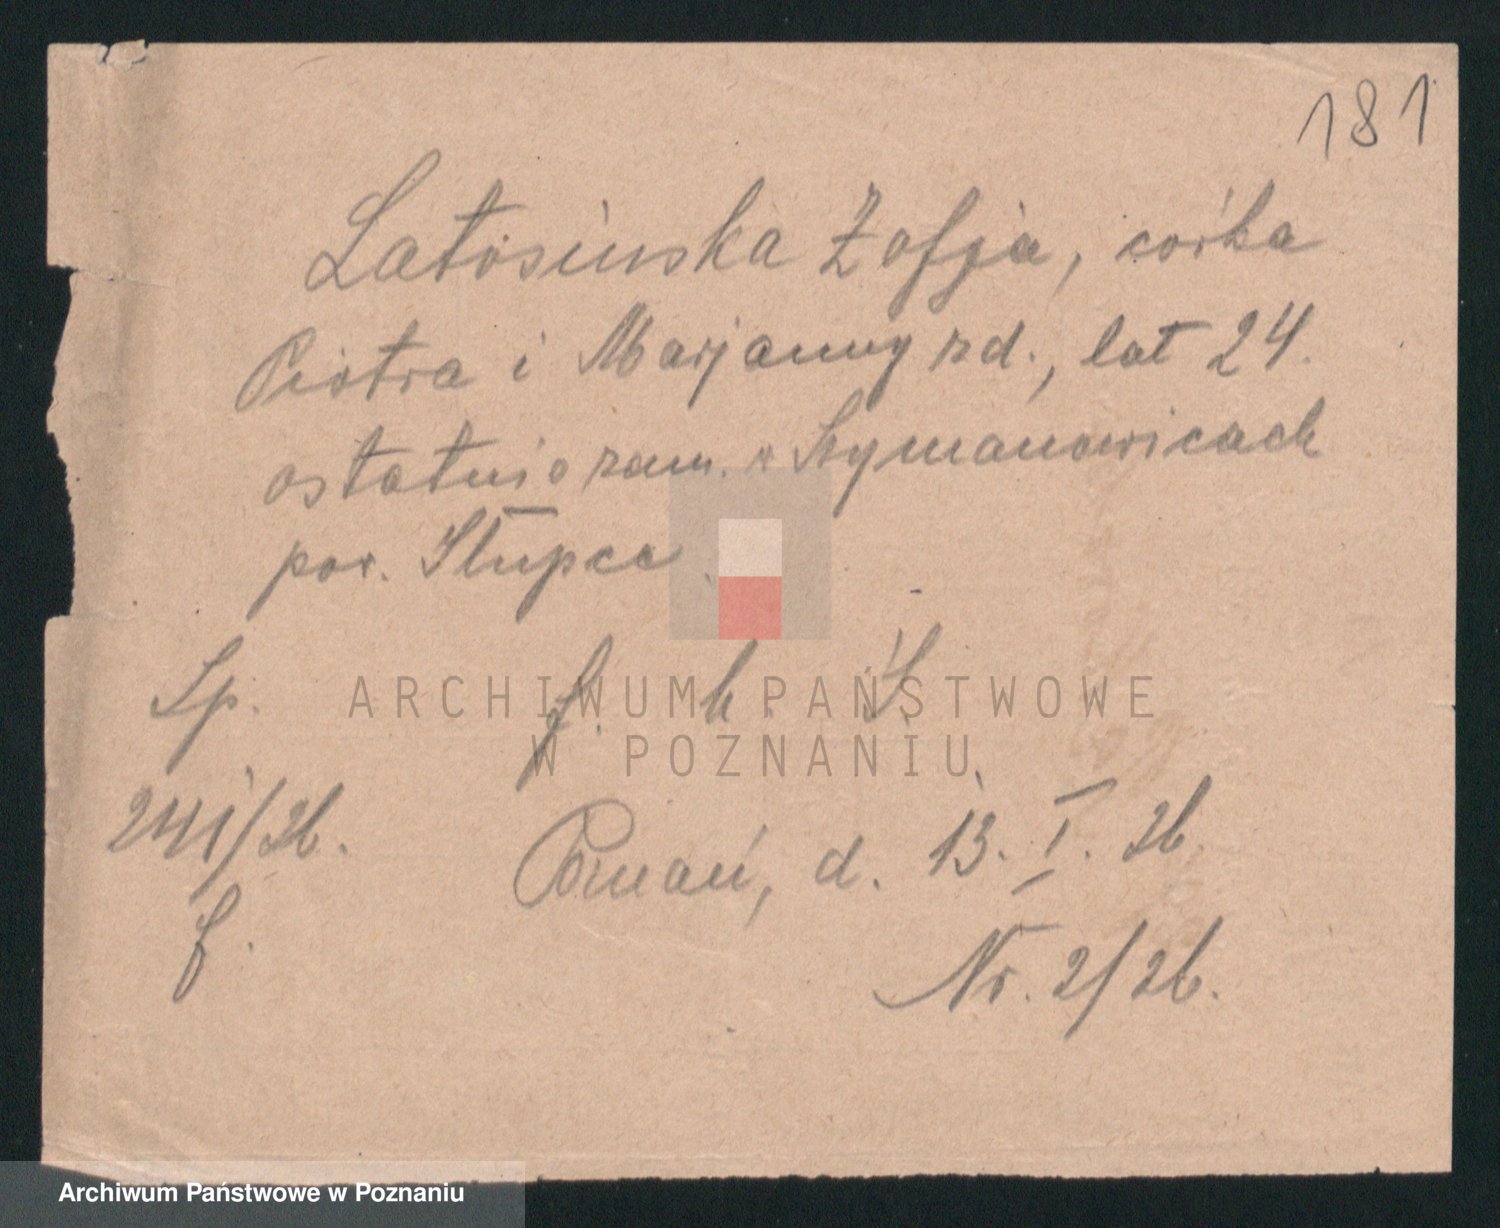 181
Latosińska Zofja, córka
Piotra i Marjanny zd., lat 24.
ostatnio zam. w Szymanowicach
pow. Słupca
Sp. J. k. S.
241/26.
Poznań, d. 13. I. 26
f.
Nr. 2/26.
ARCHIWUM PAŃSTWOWE
W POZNANIU
Archiwum Państwowe w Poznaniu